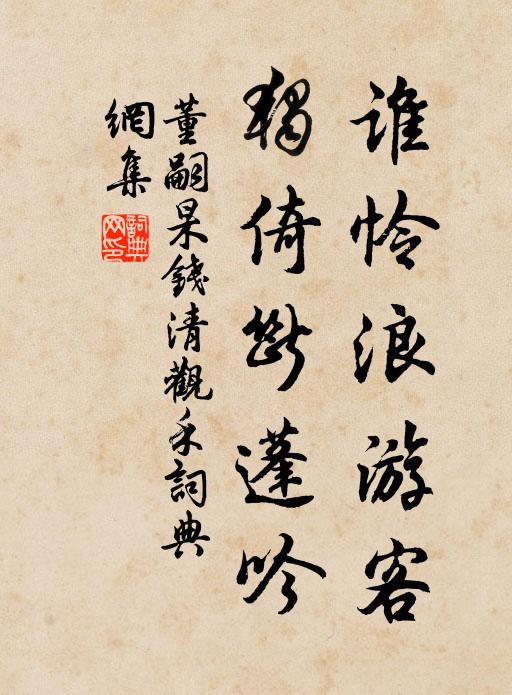 谁怜浪游客
独倚断蓬吟
董嗣杲錢清觀禾詞典
網集
詞典網印